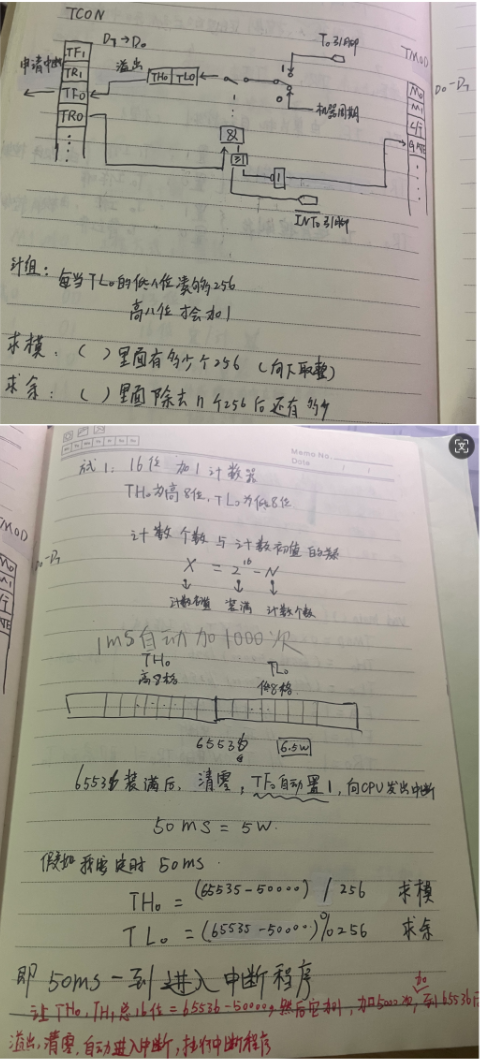 TCON
D7→D0
T0引脚
TMOD
TF1
溢出
申请中断
TR1
TH0 TL0
D0-D7
TF0
机器周期
M0
M1
TR0
C/T
&
GATE
≥1
1
INT0引脚
计组: 每当TL0的低八位凑够256
高八位才会加1
求模: ( ) 里面有多少个256 (向下取整)
求余: ( ) 里面除去n个256后还有多少
Memo No.
Date / /
式1: 16位 加1计数器
TH0为高8位, TL0为低8位
TMOD
D0-D7
计数个数与计数初值的
X = 2^16 - N
计数初值 装满 计数个数
1mS自动加1000次
TH0 TL0
高8格 低8格
65536 6.5W
65536装满后, 清零, TF0自动置1, 向CPU发出中断
50ms = 5W.
假如我要定时50ms.
TH0 = (65535-50000) / 256 求模
TL0 = (65535-50000)%256 求余
即50ms一到进入中断程序
让TH0, TH1总16位=65536-50000, 然后它加1, 加5000次, 到65536后
溢出, 清零, 自动进入中断, 执行中断程序